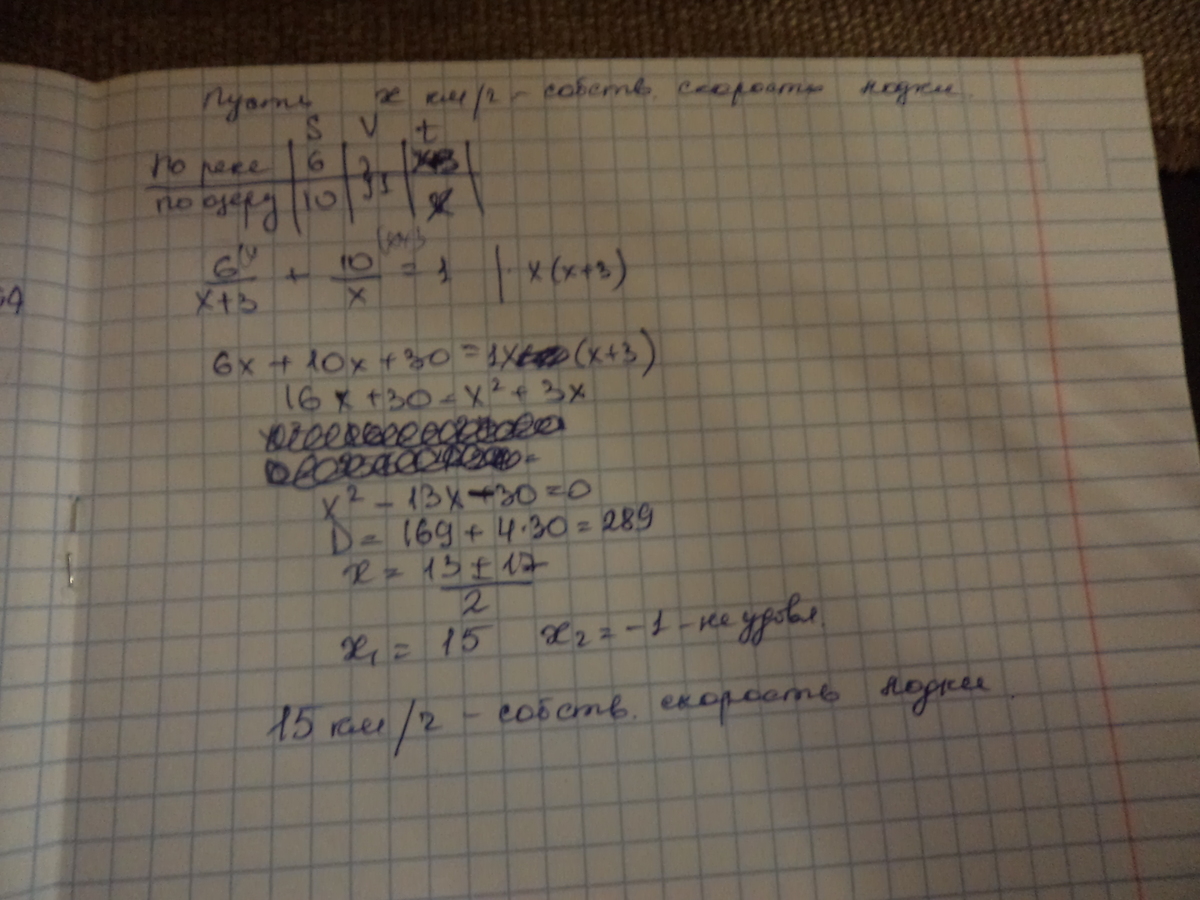 Пусть x км/ч - собств. скорость лодки.
S V t
По реке 6
По озеру 10
6(x / x+3 + 10(x+3 / x = 1 | · x(x+3)
6x + 10x + 30 = 1x (x+3)
16x + 30 = x² + 3x
x² - 13x - 30 = 0
D = 169 + 4·30 = 289
x = 13 ± 17 / 2
x₁ = 15 x₂ = -1 - не удовл.
15 км/ч - собств. скорость лодки.